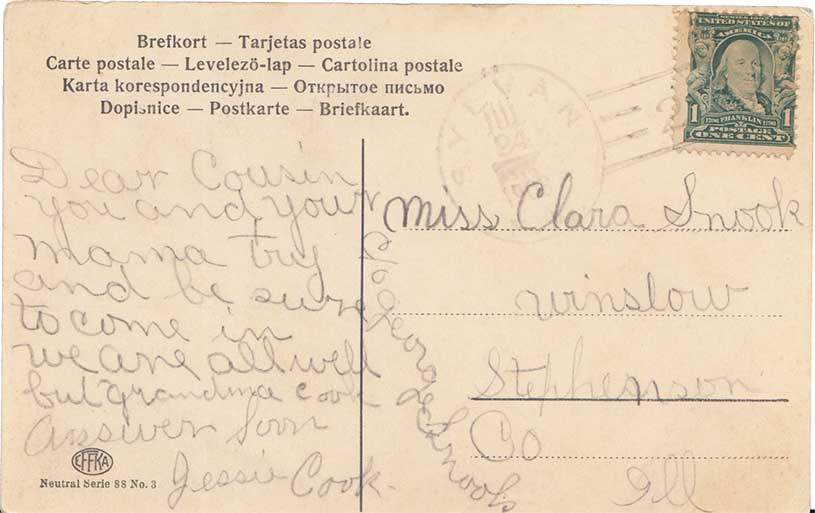 Brefkort — Tarjetas postale
Carte postale — Levelezö-lap — Cartolina postale
Karta korespondencyjna — Открытое письмо
Dopisnice — Postkarte — Briefkaart.
SERIES 1902
UNITED STATES OF
AMERICA
1 FRANKLIN 1
POSTAGE
ONE CENT
Dear Cousin
you and your
mama try
and be sure
to come in
we are all well
but grandma Cook
Answer Soon
Jessie Cook.
Miss Clara Snook
Winslow
Stephenson
Co
Ill
c/o George Snook
EFFKA
Neutral Serie 88 No. 3